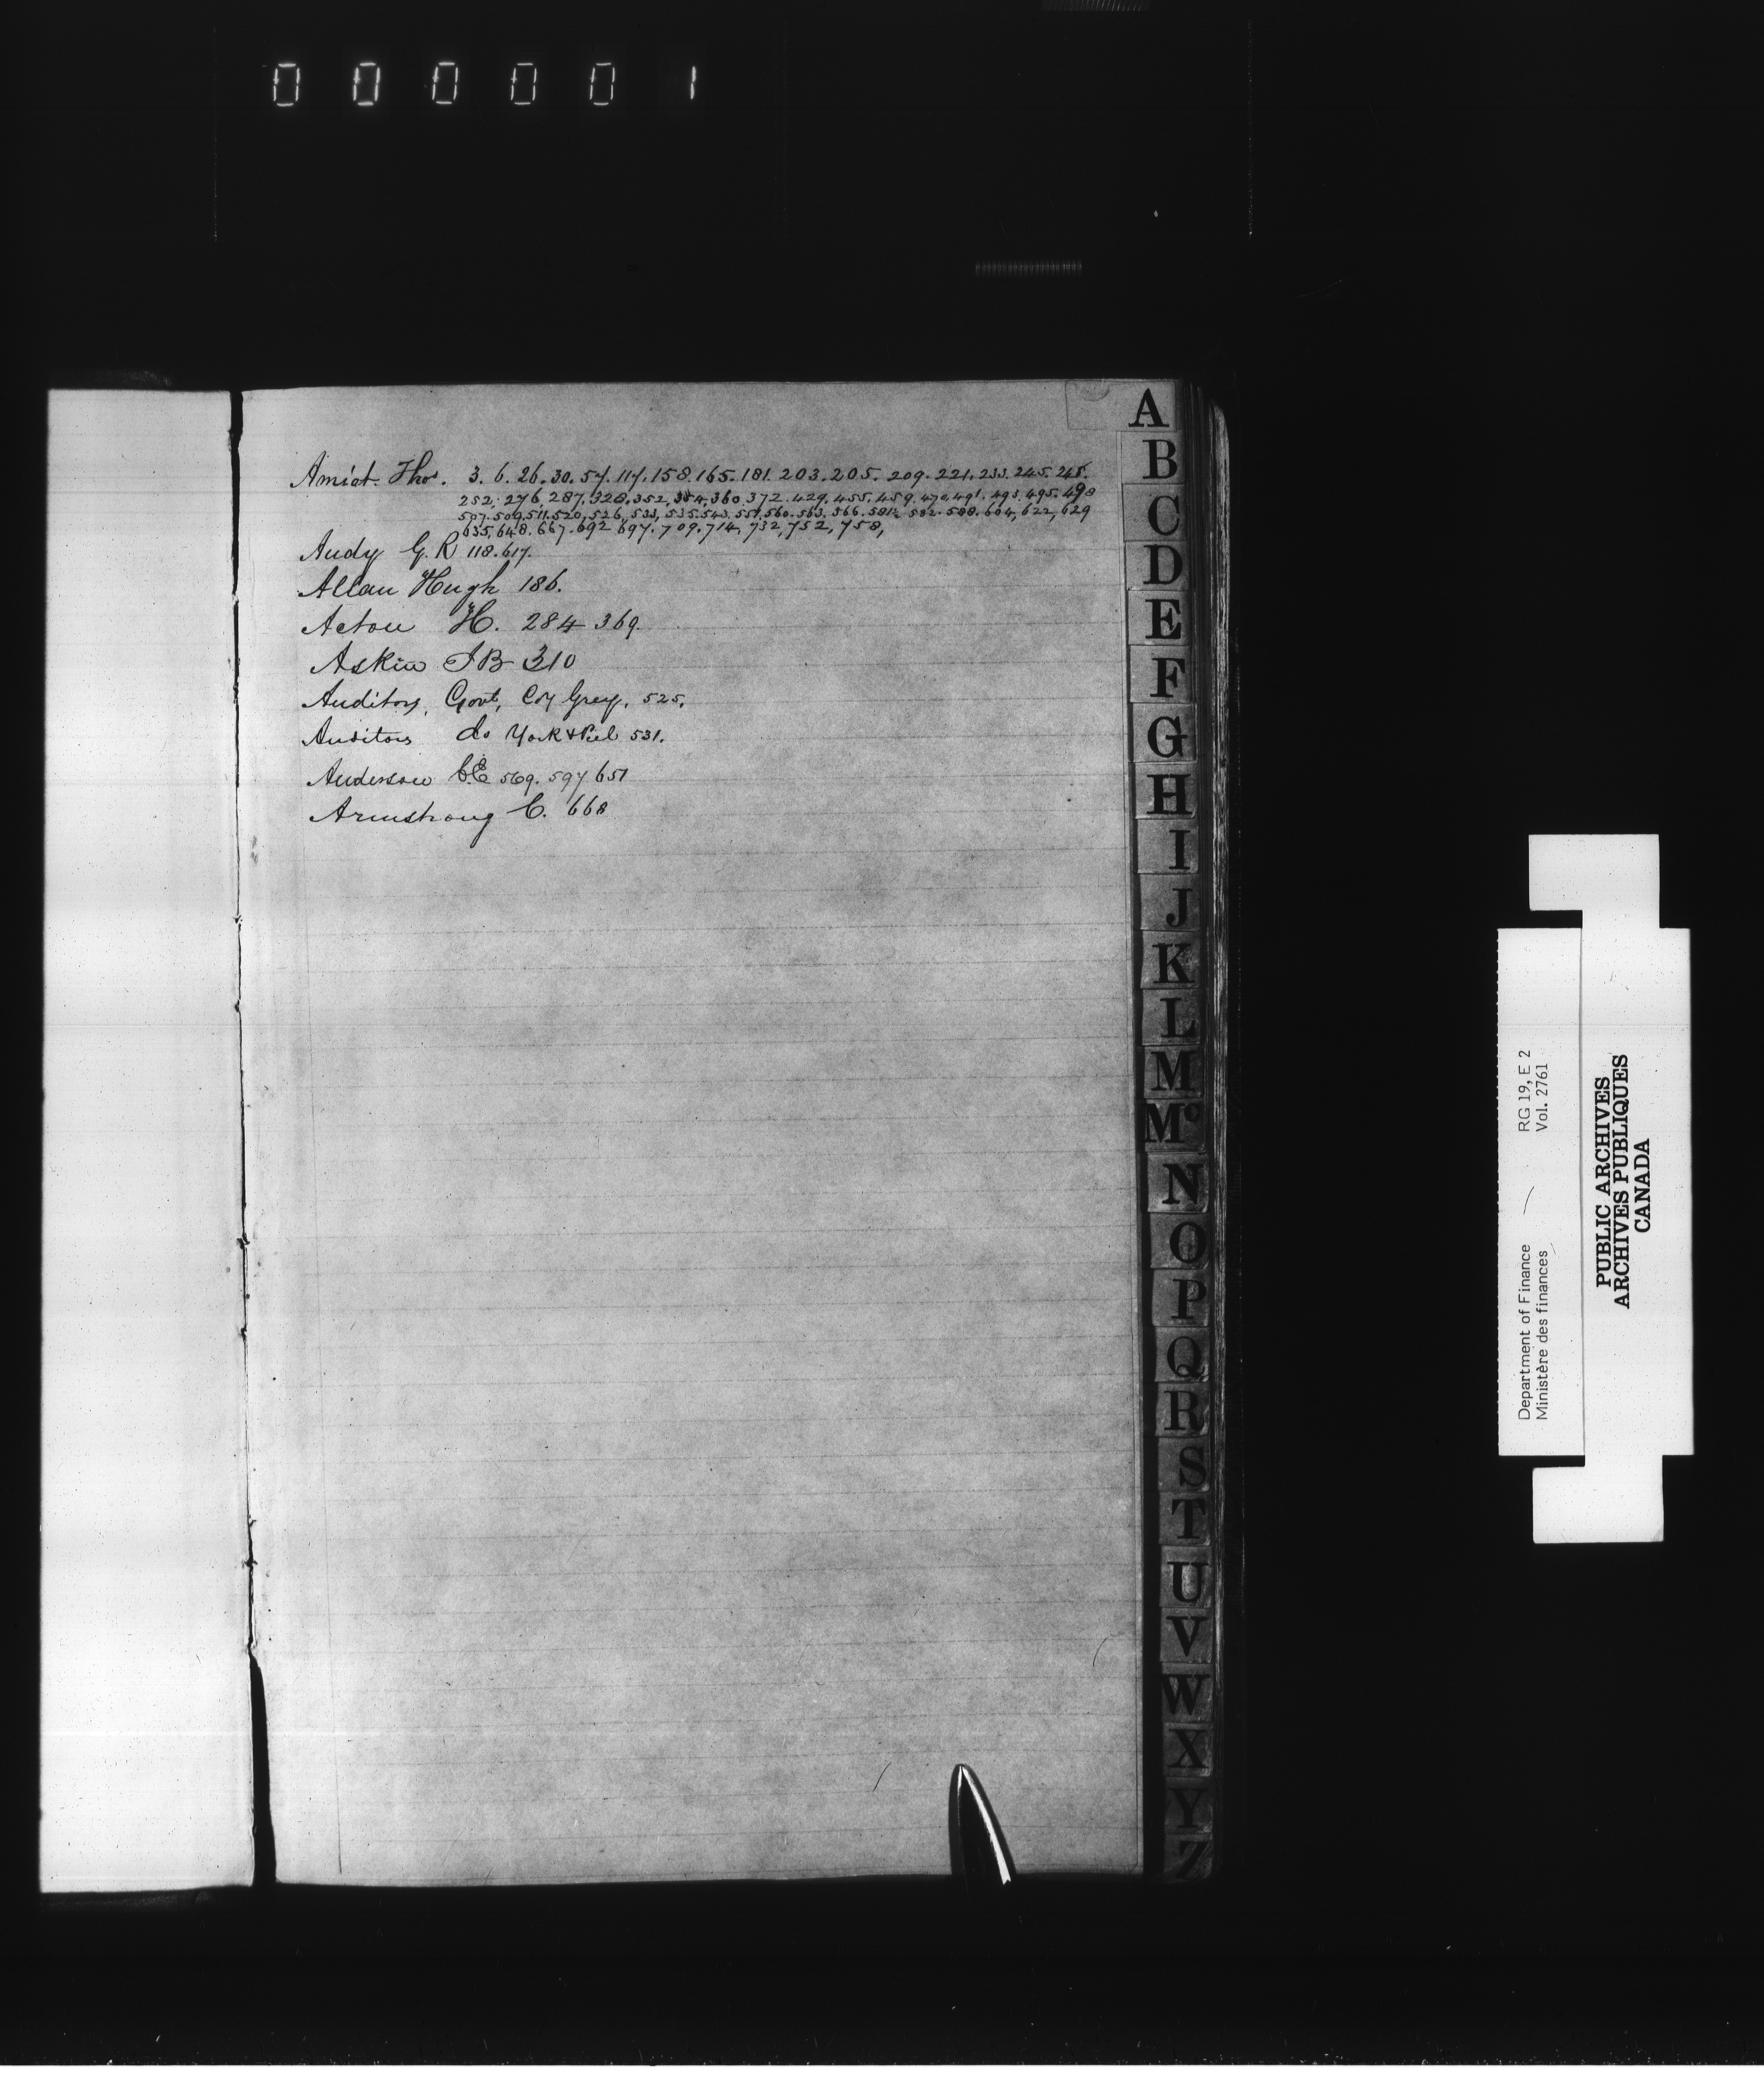 000001
Amiot Thos. 3. 6. 26. 30. 57. 117. 158. 165. 181. 203. 205. 209. 221. 233. 245. 248.
252, 276, 287, 328, 352, 354, 360, 372. 429. 455. 459. 470, 491. 493. 495. 498
507. 509, 511. 520, 526, 533, 535. 543. 551, 560. 563. 566. 581½ 582. 588. 604, 622, 629
635, 648. 667. 692 697. 709. 714, 732, 752, 758,
Audy G. R 118. 617.
Allan Hugh 186.
Acton H. 284 369.
Askin J B 310
Auditors, Govt, Coy Grey, 525,
Auditors do York & Peel 531.
Anderson C.E 569. 597 651
Armstrong C. 668
A
B
C
D
E
F
G
H
I
J
K
L
M
Mc
N
O
P
Q
R
S
T
U
V
W
X
Y
Z
Department of Finance RG 19, E 2
Ministère des finances Vol. 2761
PUBLIC ARCHIVES
ARCHIVES PUBLIQUES
CANADA